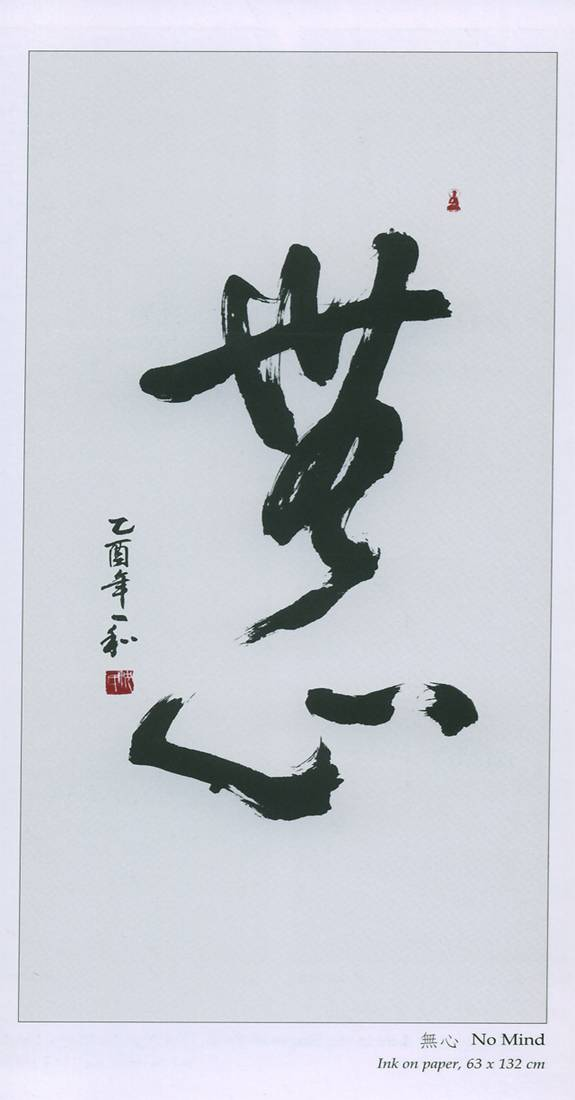 無心
乙酉年一和
無心 No Mind
Ink on paper, 63 x 132 cm